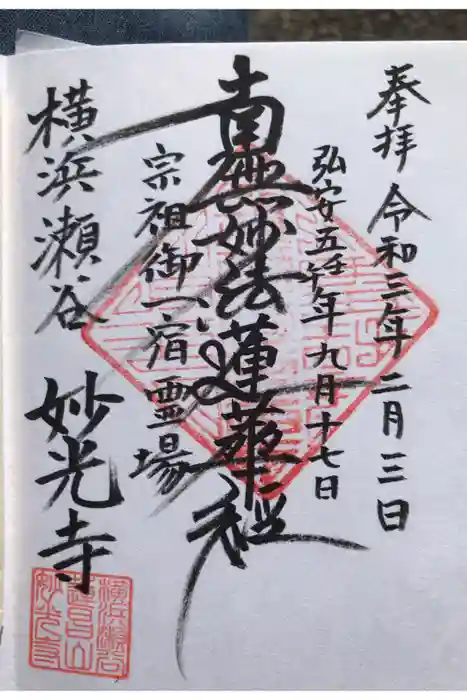 奉拝 令和三年二月三日
弘安五壬午年九月十七日
南無妙法蓮華経
宗祖御一宿霊場
横浜瀬谷 妙光寺
横浜瀬谷
妙光寺